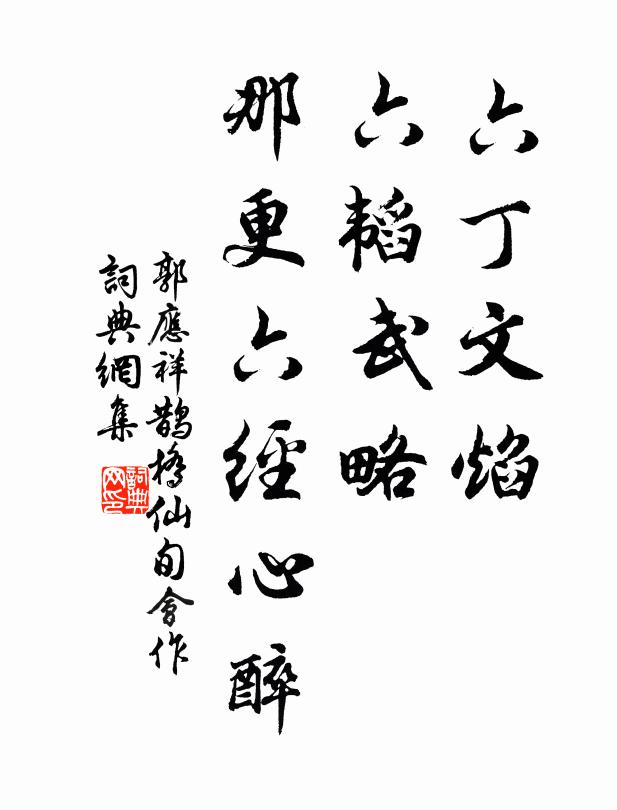 六丁文焰
六韜武略
那更六經心醉
郭應祥鵲橋仙旬會作
詞典網集
詞典网印